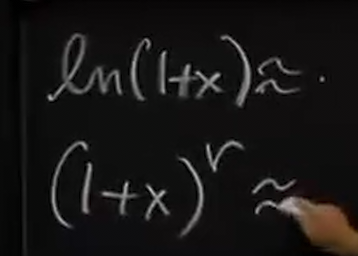 ln(1+x) ≈
(1+x)^r ≈